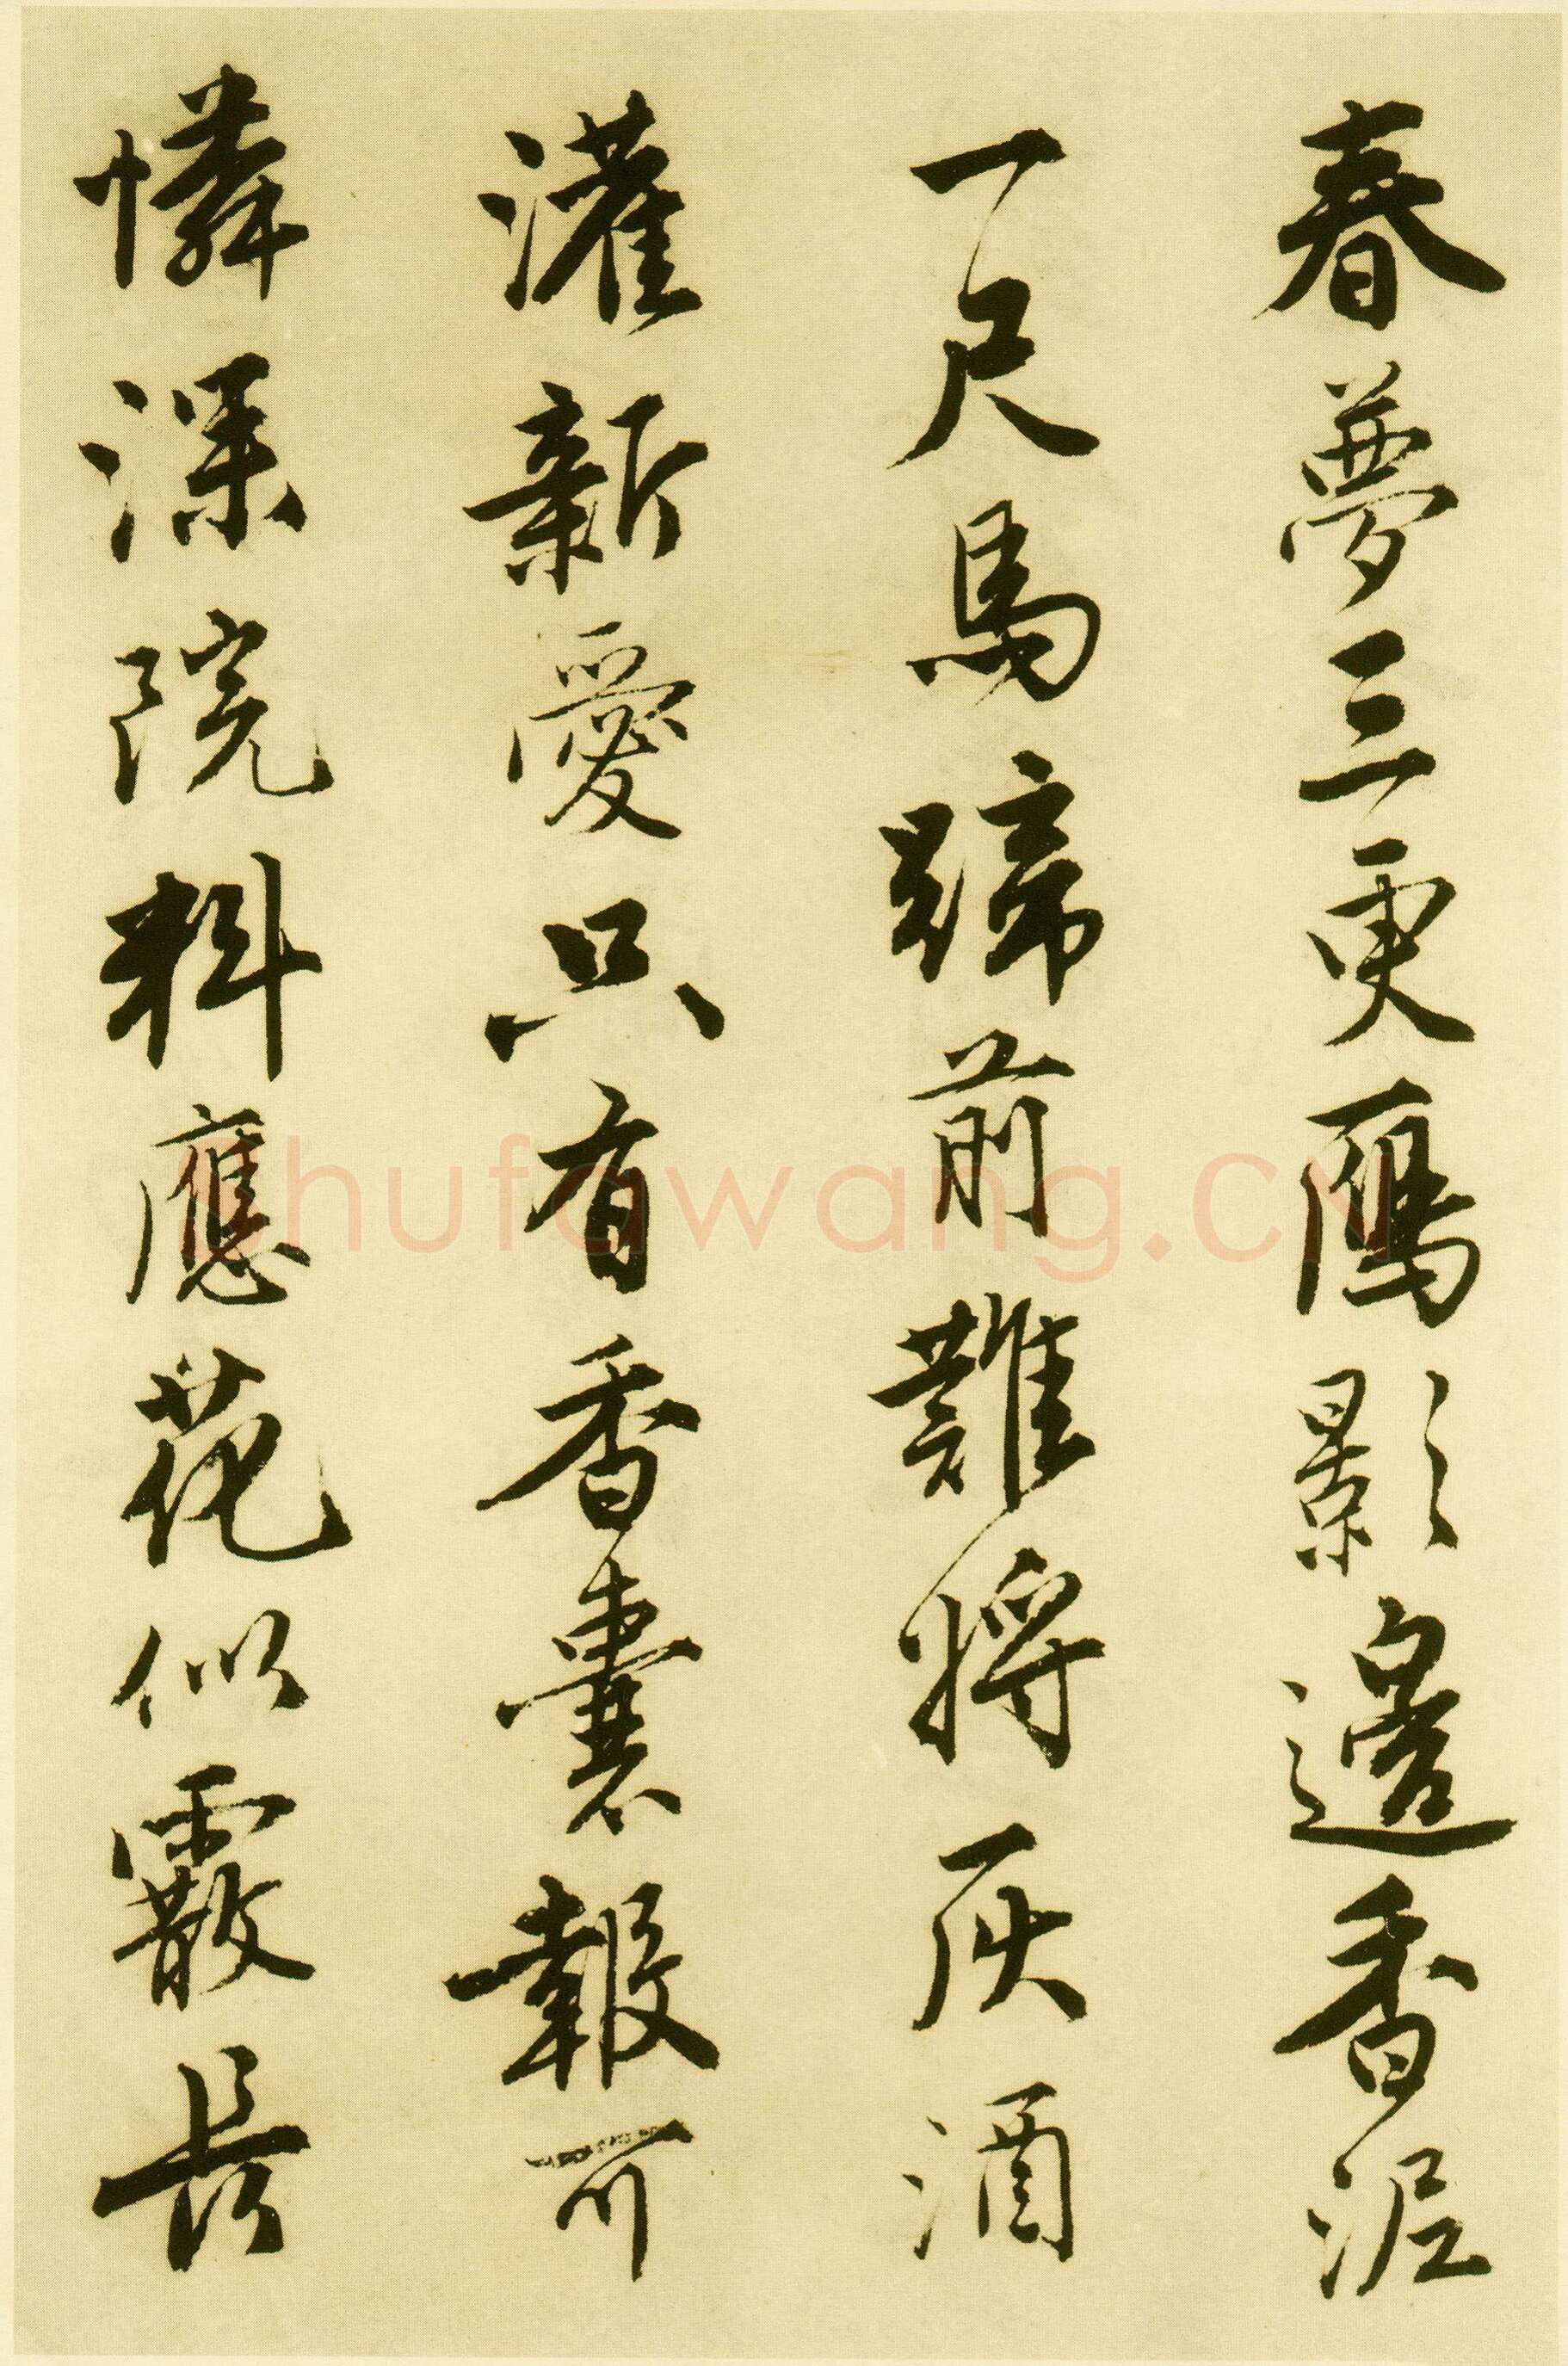 春夢三更鴈影邊香泥
一尺馬蹄前難將灰酒
灌新愛只有香囊報可
憐深院料應花似霰長
shufawang.cn